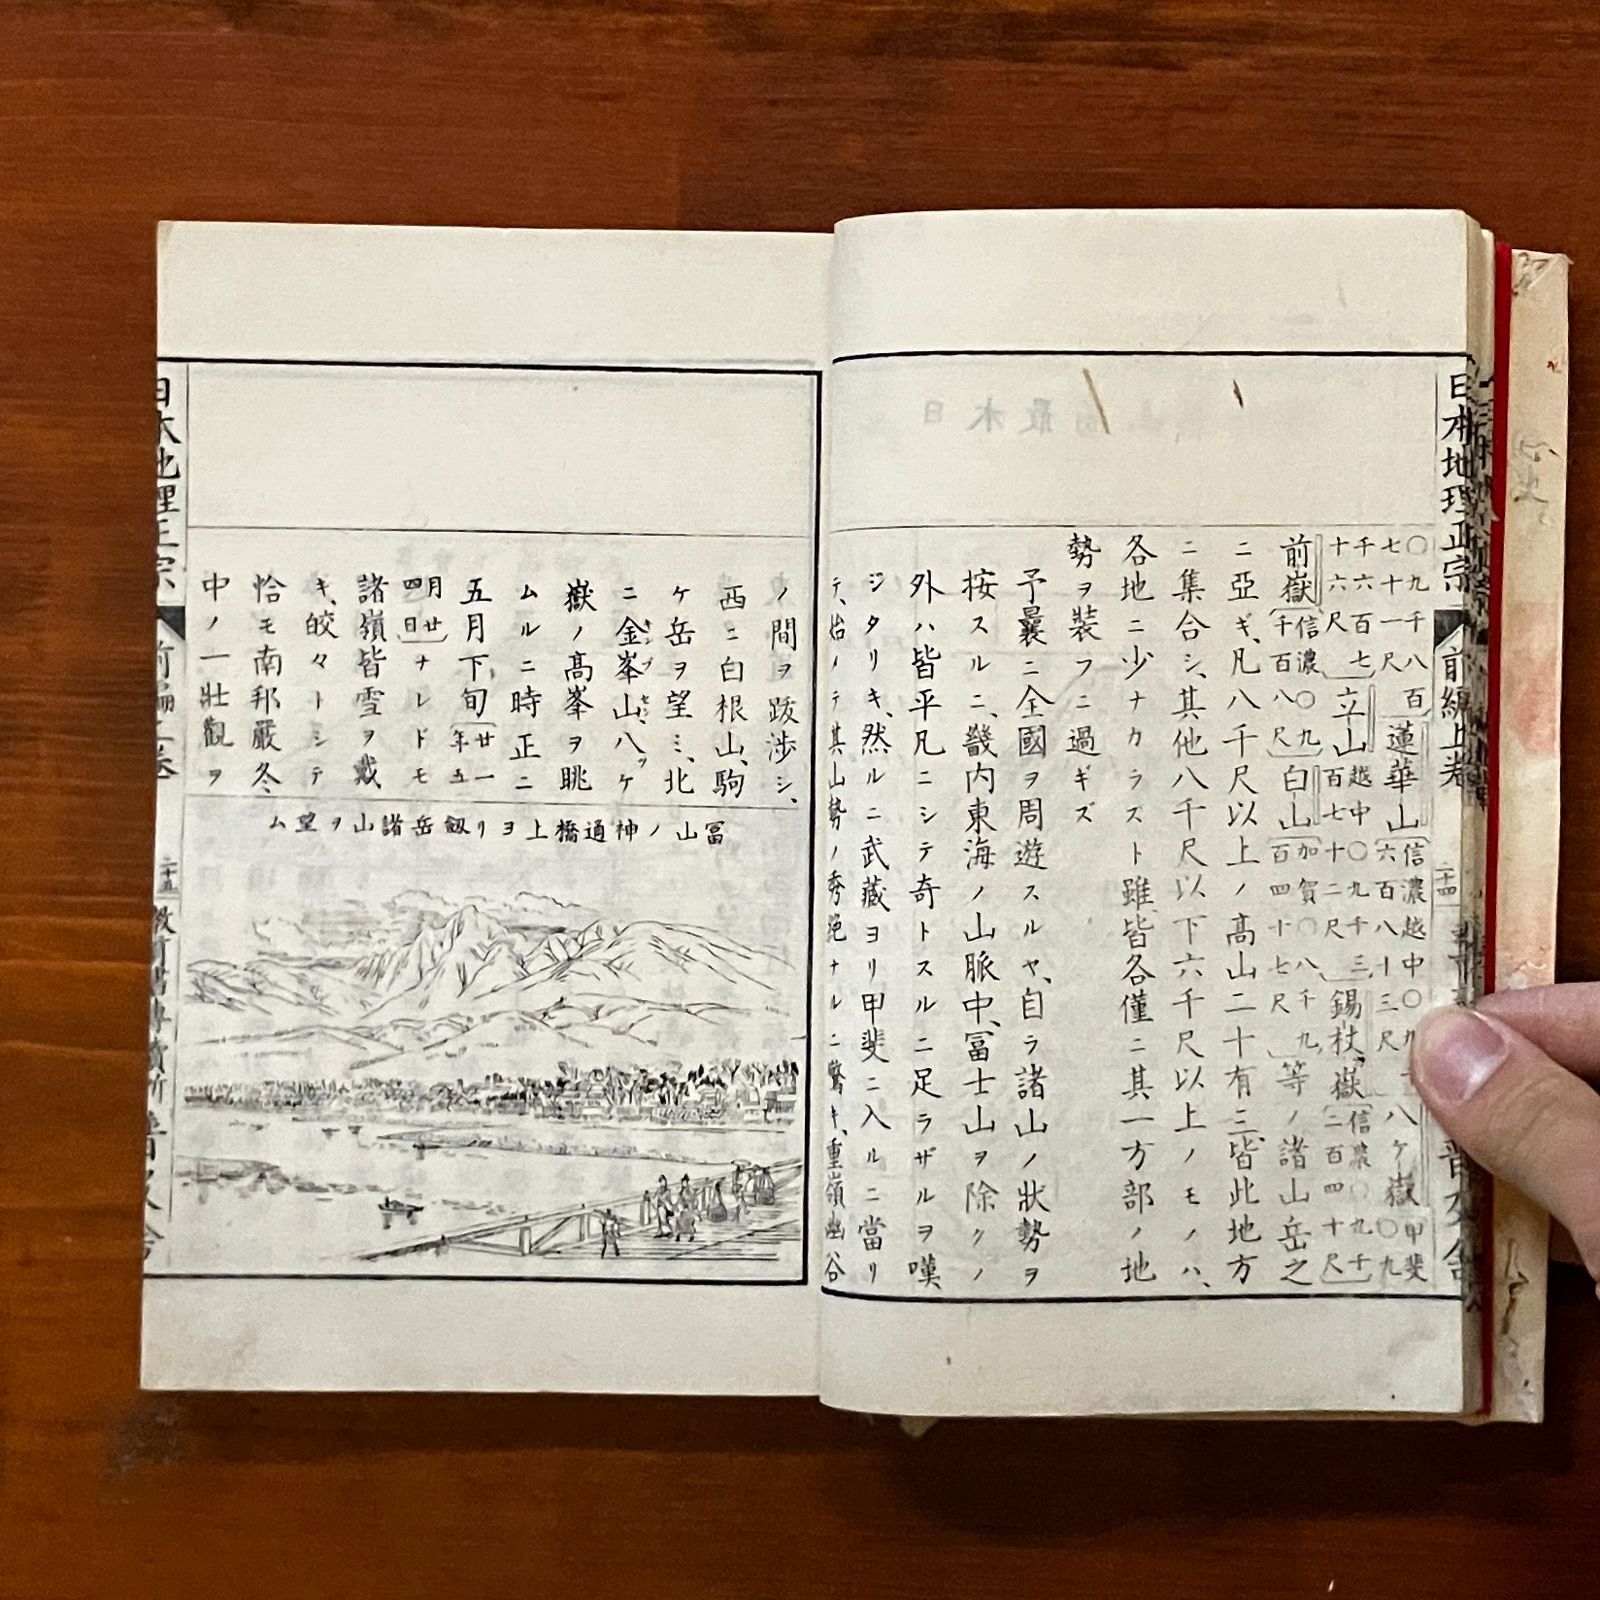 日本地理正宗 前編上巻 二十四
〇九千八百
七十一尺
蓮華山
信濃越中〇九
六百八十三尺
八ケ嶽
甲斐
〇九
千六百七
十六尺
立山
越中〇九千三
百七十二尺
錫杖嶽
信濃〇九千
二百四十尺
前嶽
信濃〇九
千百八尺
白山
加賀〇八千九
百四十七尺
等ノ諸山岳之
ニ亞ギ、凡八千尺以上ノ髙山二十有三、皆此地方
ニ集合シ、其他八千尺以下六千尺以上ノモノハ、
各地ニ少ナカラスト雖、皆各僅ニ其一方部ノ地
勢ヲ裝フニ過ギズ
予曩ニ全國ヲ周遊スルヤ、自ラ諸山ノ狀勢ヲ
按スルニ、畿内東海ノ山脈中、冨士山ヲ除クノ
外ハ皆平凡ニシテ奇トスルニ足ラザルヲ嘆
ジタリキ、然ルニ武藏ヨリ甲斐ニ入ルニ當リ
テ、始メテ其山勢ノ秀絶ナルニ驚キ、重嶺幽谷
ノ間ヲ跋渉シ、
西ニ白根山、駒
ケ岳ヲ望ミ、北
ニ金峯山、八ケ
嶽ノ髙峯ヲ眺
ムルニ時正ニ
五月下旬
廿一年五
月廿四日
ナレドモ
諸嶺皆雪ヲ戴
キ、皎々トシテ
恰モ南邦嚴冬
中ノ一壯觀ヲ
冨山ノ神通橋上ヨリ劔岳諸山ヲ望ム
日本地理正宗 前編上巻 二十五